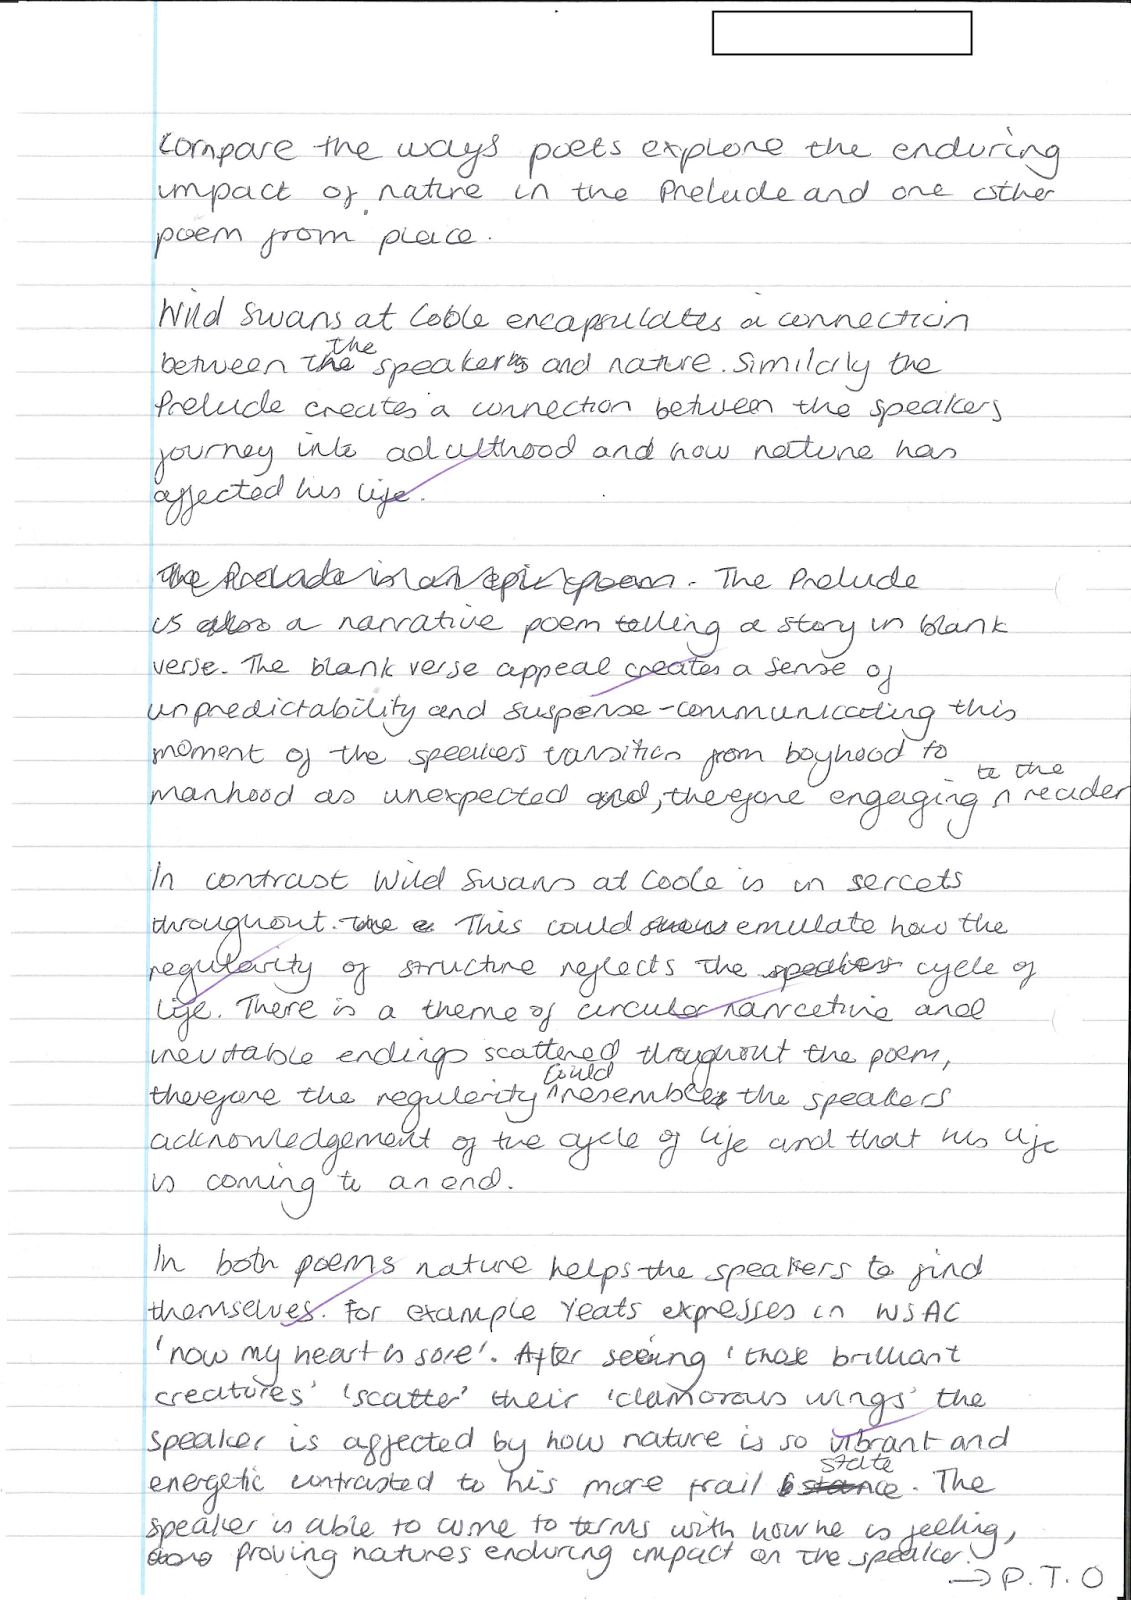 Compare the ways poets explore the enduring
impact of nature in the Prelude and one other
poem from place.
Wild Swans at Coole encapsulates a connection
between the the speaker and nature. Similarly the
Prelude creates a connection between the speakers
journey into adulthood and how nature has
affected his life.
The Prelude is an epic poem. The Prelude
is also a narrative poem telling a story in blank
verse. The blank verse appeal creates a sense of
unpredictability and suspense - communicating this
moment of the speakers transition from boyhood to
manhood as unexpected and, therefore engaging to the reader
In contrast Wild Swans at Coole is in sercets
throughout. The This could show emulate how the
regularity of structure reflects the speakers cycle of
life. There is a theme of circular narrative and
inevitable endings scattered throughout the poem,
therefore the regularity could resembles the speakers
acknowledgement of the cycle of life and that his life
is coming to an end.
In both poems nature helps the speakers to find
themselves. For example Yeats expresses in WSAC
'now my heart is sore'. After seeing 'those brilliant
creatures' 'scatter' their 'clamorous wings' the
speaker is affected by how nature is so vibrant and
energetic contrasted to his more frail stance state. The
speaker is able to come to terms with how he is feeling,
proving natures enduring impact on the speaker.
→ P.T.O